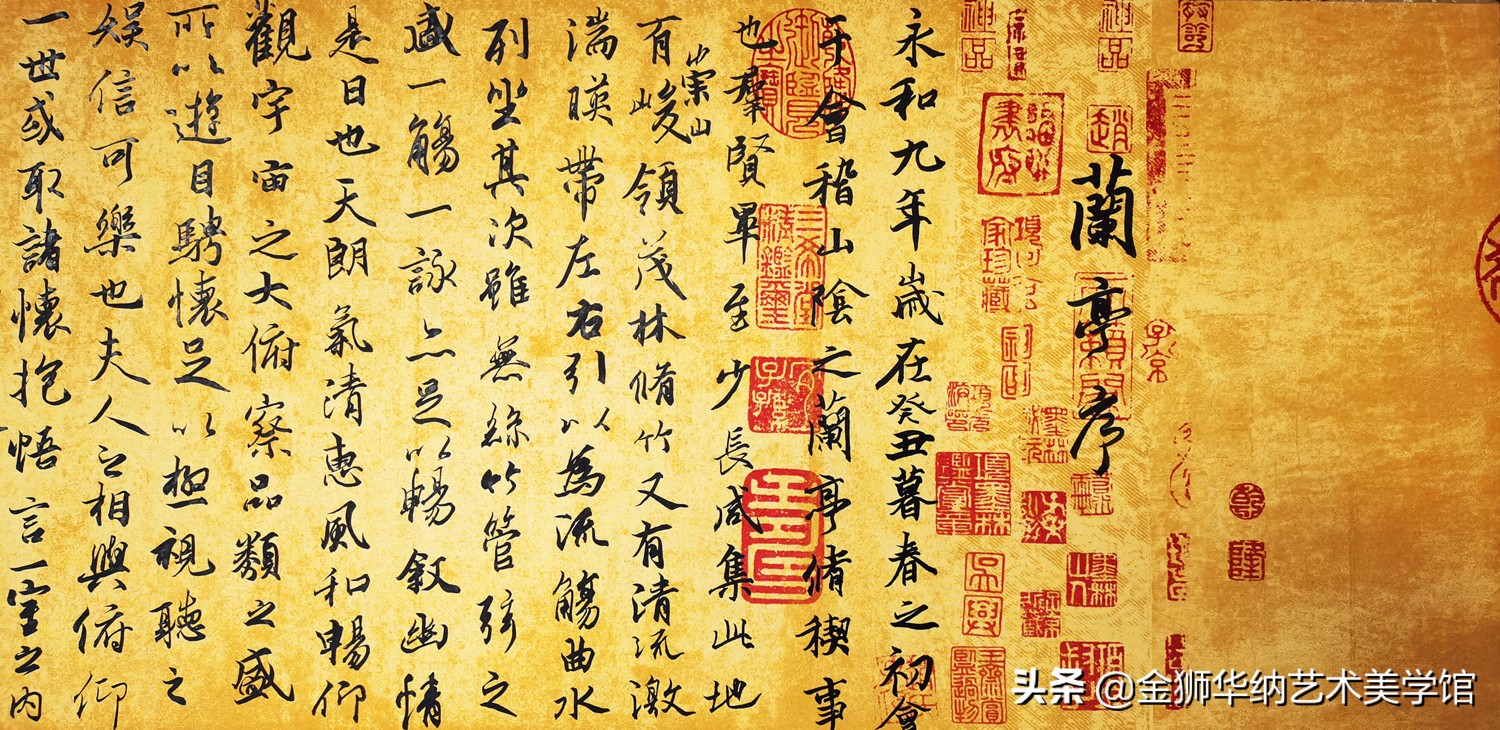 蘭亭序
永和九年歲在癸丑暮春之初會
于會稽山陰之蘭亭脩稧事
也羣賢畢至少長咸集此地
有崇山峻領茂林脩竹又有清流激
湍暎帶左右引以為流觴曲水
列坐其次雖無絲竹管弦之
盛一觴一詠亦足以暢叙幽情
是日也天朗氣清惠風和暢仰
觀宇宙之大俯察品類之盛
所以遊目騁懷足以極視聽之
娛信可樂也夫人之相與俯仰
一世或取諸懷抱悟言一室之內
头条 @金狮华纳艺术美学馆